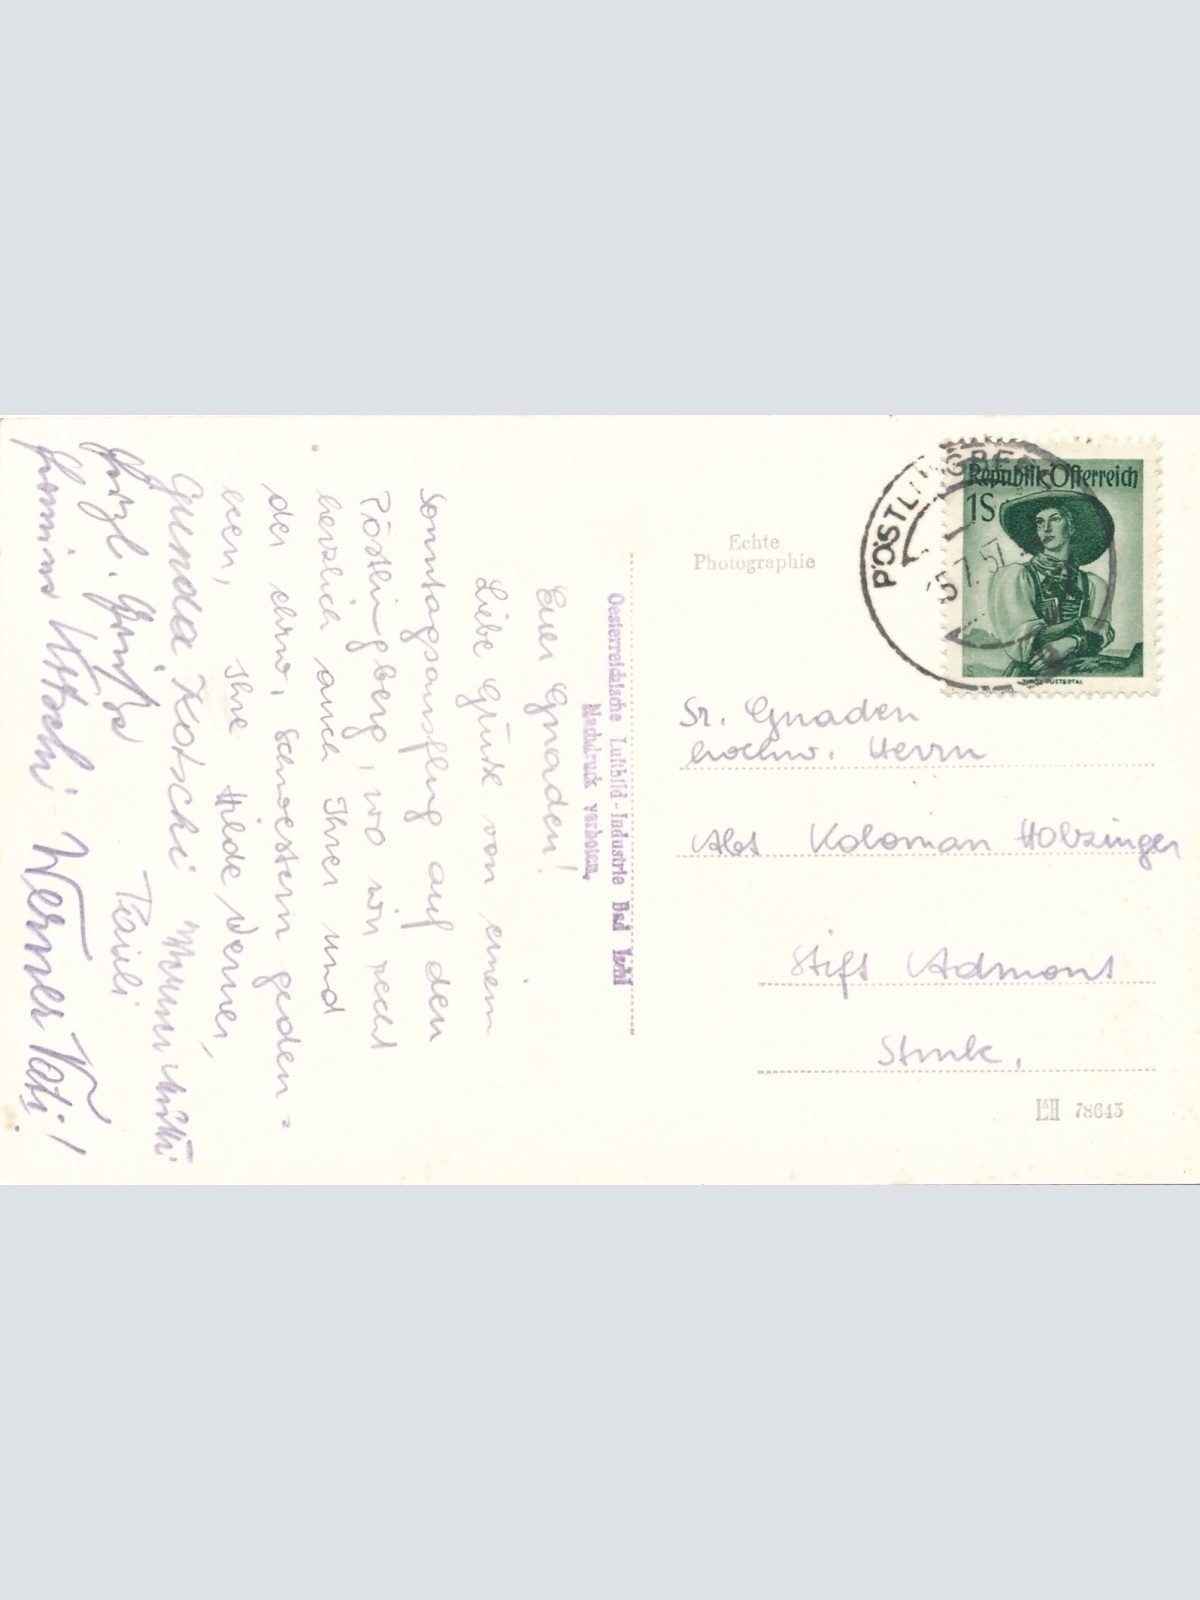 Euer Gnaden!
Liebe Grüße von einem
Sonntagsausflug auf den
Pöstlingberg, wo wir recht
herzlich auch Ihrer und
der ehrw. Schwestern geden=
ken,
Ihre Hilde Werner,
Gunda Kotschi
Herzl. Grüße
Pauli
Werner Vati!
Oesterreichische Luftbild-Industrie Bad Ischl
Nachdruck verboten.
Echte
Photographie
PÖSTLINGBERG
5.7.57
Republik Österreich
1S
TIROL, PUSTERTAL
Sr. Gnaden
hochw. Herrn
Abt Koloman Holzinger
Stift Admont
Stmk.
78645